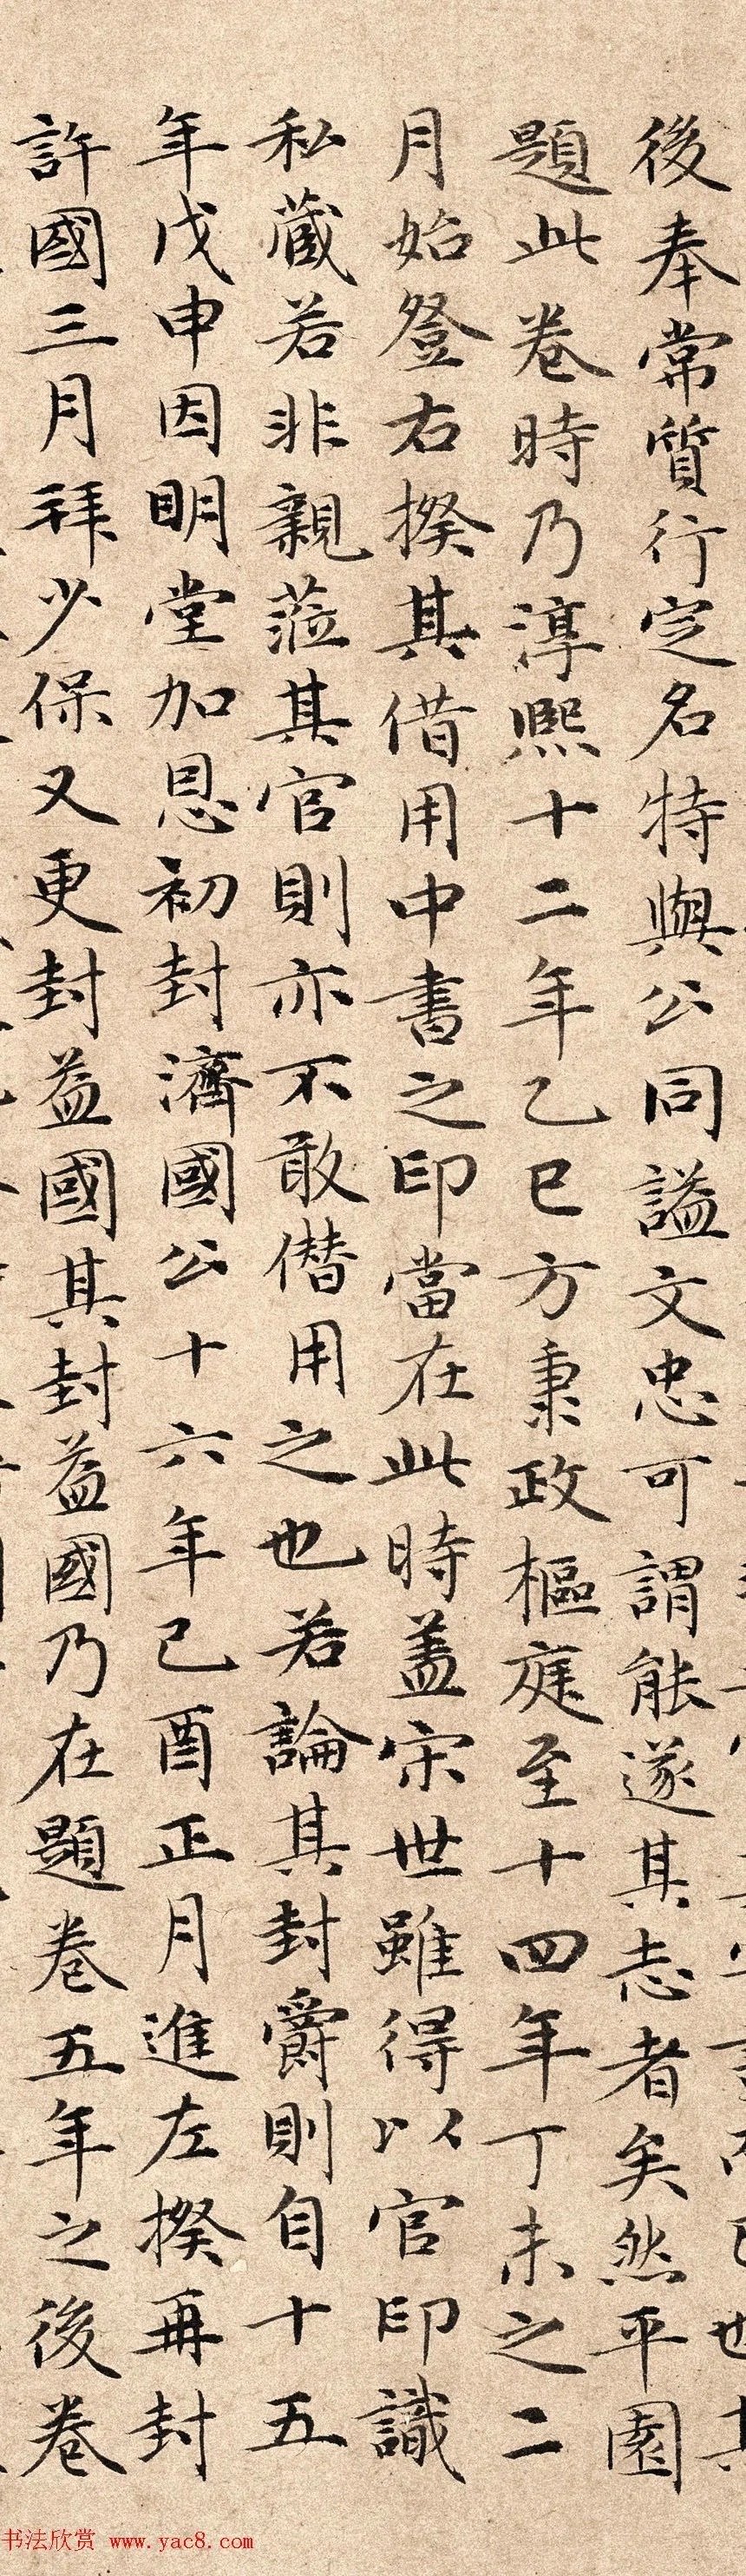 後奉常質行定名特與公同謚文忠可謂能遂其志者矣然平園
題此卷時乃淳熙十二年乙巳方秉政樞庭至十四年丁未之二
月始登右揆其借用中書之印當在此時蓋宋世雖得以官印識
私藏若非親蒞其官則亦不敢僭用之也若論其封爵則自十五
年戊申因明堂加恩初封濟國公十六年己酉正月進左揆再封
許國三月拜少保又更封益國其封益國乃在題卷五年之後卷
书法欣赏 www.yac8.com